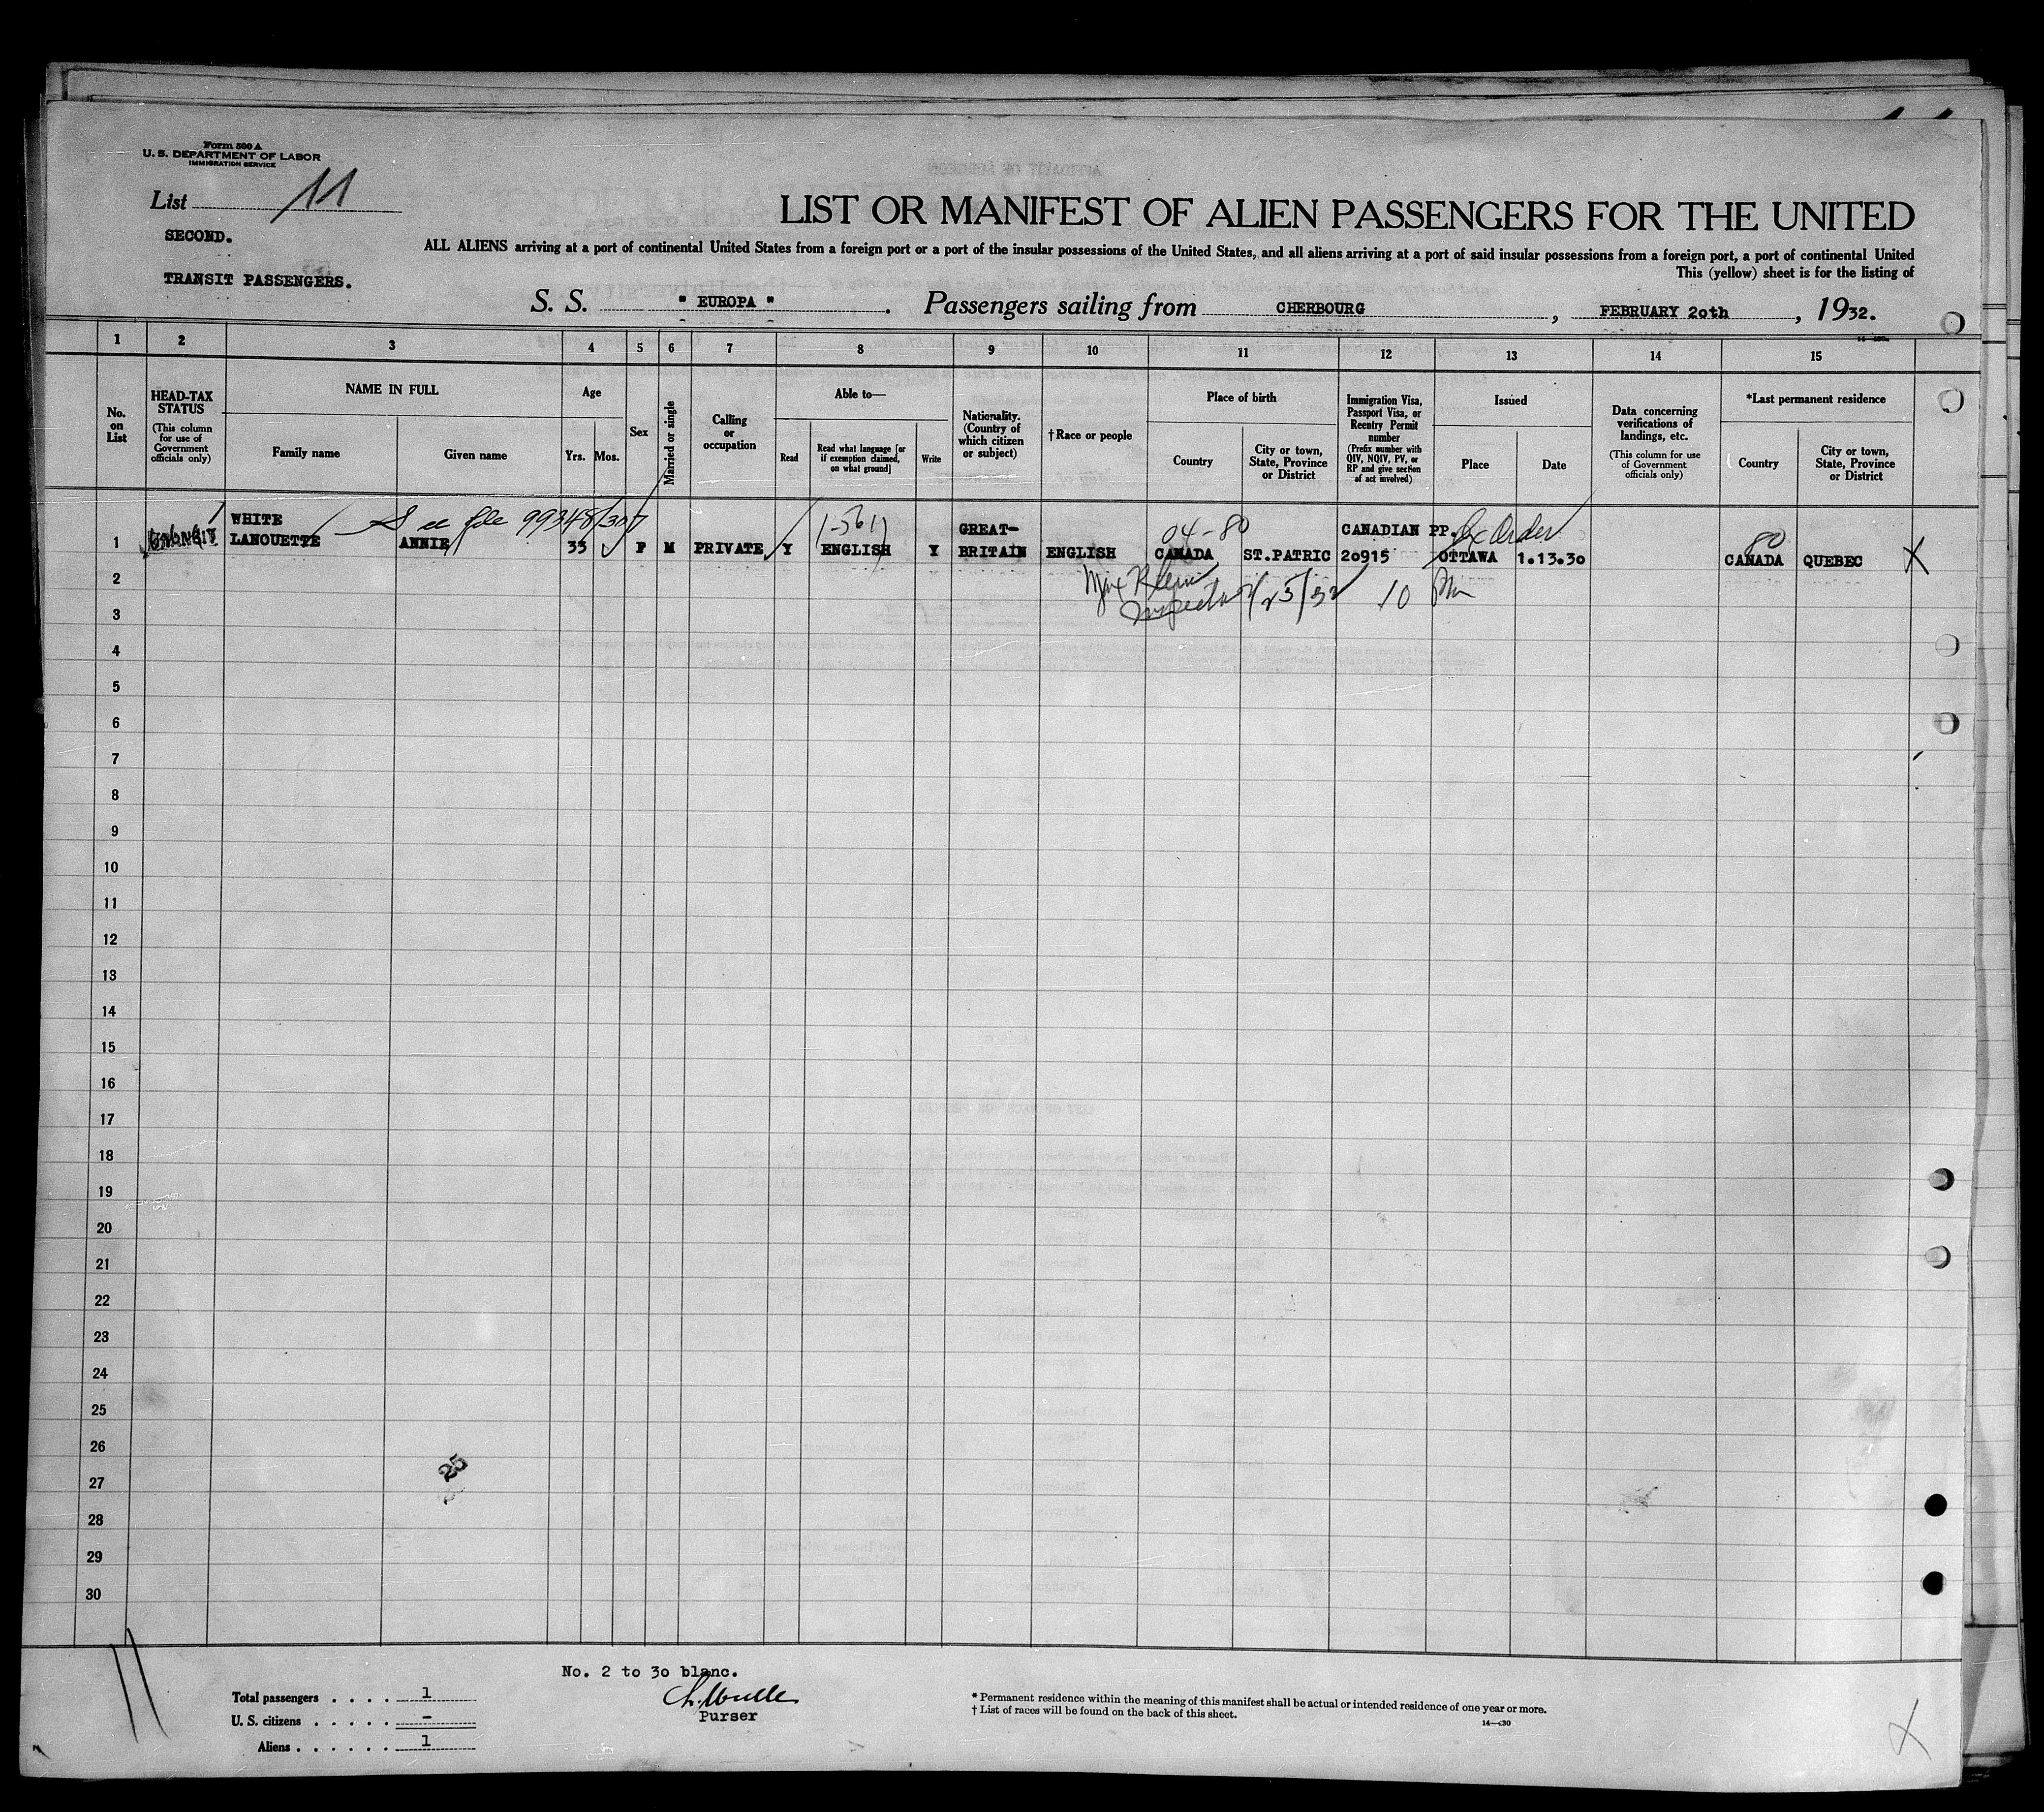 Form 500 A
U. S. DEPARTMENT OF LABOR
IMMIGRATION SERVICE
List 11
SECOND.
TRANSIT PASSENGERS.
LIST OR MANIFEST OF ALIEN PASSENGERS FOR THE UNITED
ALL ALIENS arriving at a port of continental United States from a foreign port or a port of the insular possessions of the United States, and all aliens arriving at a port of said insular possessions from a foreign port, a port of continental United
This (yellow) sheet is for the listing of
S. S. " EUROPA ". Passengers sailing from CHERBOURG, FEBRUARY 20th, 1932.
1 2 3 4 5 6 7 8 9 10 11 12 13 14 15
No. on List
HEAD-TAX STATUS
(This column for use of Government officials only)
NAME IN FULL
Family name
Given name
Age
Yrs.
Mos.
Sex
Married or single
Calling or occupation
Able to—
Read
Read what language [or if exemption claimed, on what ground]
Write
Nationality. (Country of which citizen or subject)
†Race or people
Place of birth
Country
City or town, State, Province or District
Immigration Visa, Passport Visa, or Reentry Permit number
(Prefix number with QIV, NQIV, PV, or RP and give section of act involved)
Issued
Place
Date
Data concerning verifications of landings, etc.
(This column for use of Government officials only)
*Last permanent residence
Country
City or town, State, Province or District
WHITE See file 99348/307 GREAT- 04-80 CANADIAN PP. Ex Order 80
1 LANOUETTE ANNIE 33 F M PRIVATE Y ENGLISH Y BRITAIN ENGLISH CANADA ST.PATRIC 20915 OTTAWA 1.13.30 CANADA QUEBEC X
2
Inspector 2/25/32 10
3
4
5
6
7
8
9
10
11
12
13
14
15
16
17
18
19
20
21
22
23
24
25
26
25
27
28
29
30
11
No. 2 to 30 blanc.
Purser
Total passengers . . . . 1
U. S. citizens . . . . . –
Aliens . . . . . . 1
* Permanent residence within the meaning of this manifest shall be actual or intended residence of one year or more.
† List of races will be found on the back of this sheet.
14—430
X